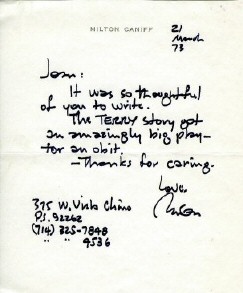 MILTON CANIFF
21
March
73
Joan:
It was so thoughtful
of you to write.
The TERRY story got
an amazingly big play—
for an obit.
—Thanks for caring.
Love,
Milton
375 W. Vista Chino
P.S. 92262
(714) 325-7848
" " 4536